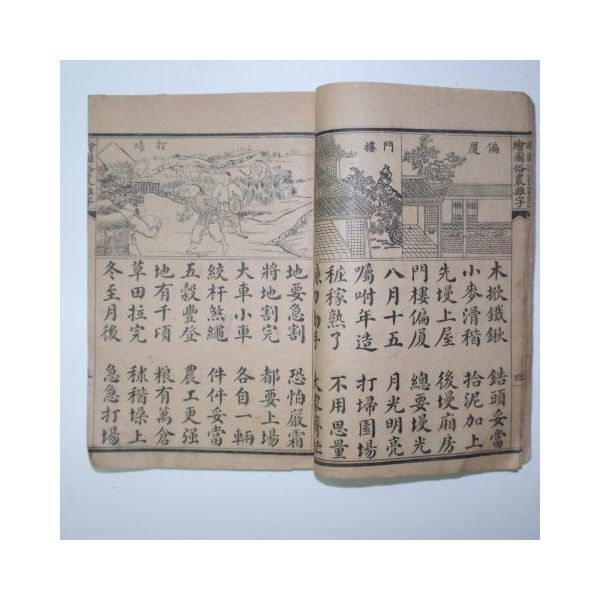 繪圖俗農雜字
偏厦
門樓
木掀鐵鍬 鋯頭妥當
小麥滑稭 拾泥加上
先墁上屋 後墁廂房
門樓偏厦 總要墁光
八月十五 月光明亮
囑咐年造 打掃園場
粧稼熟了 不用思量
打場
地要急割 恐怕嚴霜
將地割完 都要上場
大車小車 各自一輛
絞杆煞繩 件件妥當
五穀豐登 農工更强
地有千頃 粮有萬倉
草田拉完 秫稭垜上
冬至月後 急急打場
繪圖俗農雜字